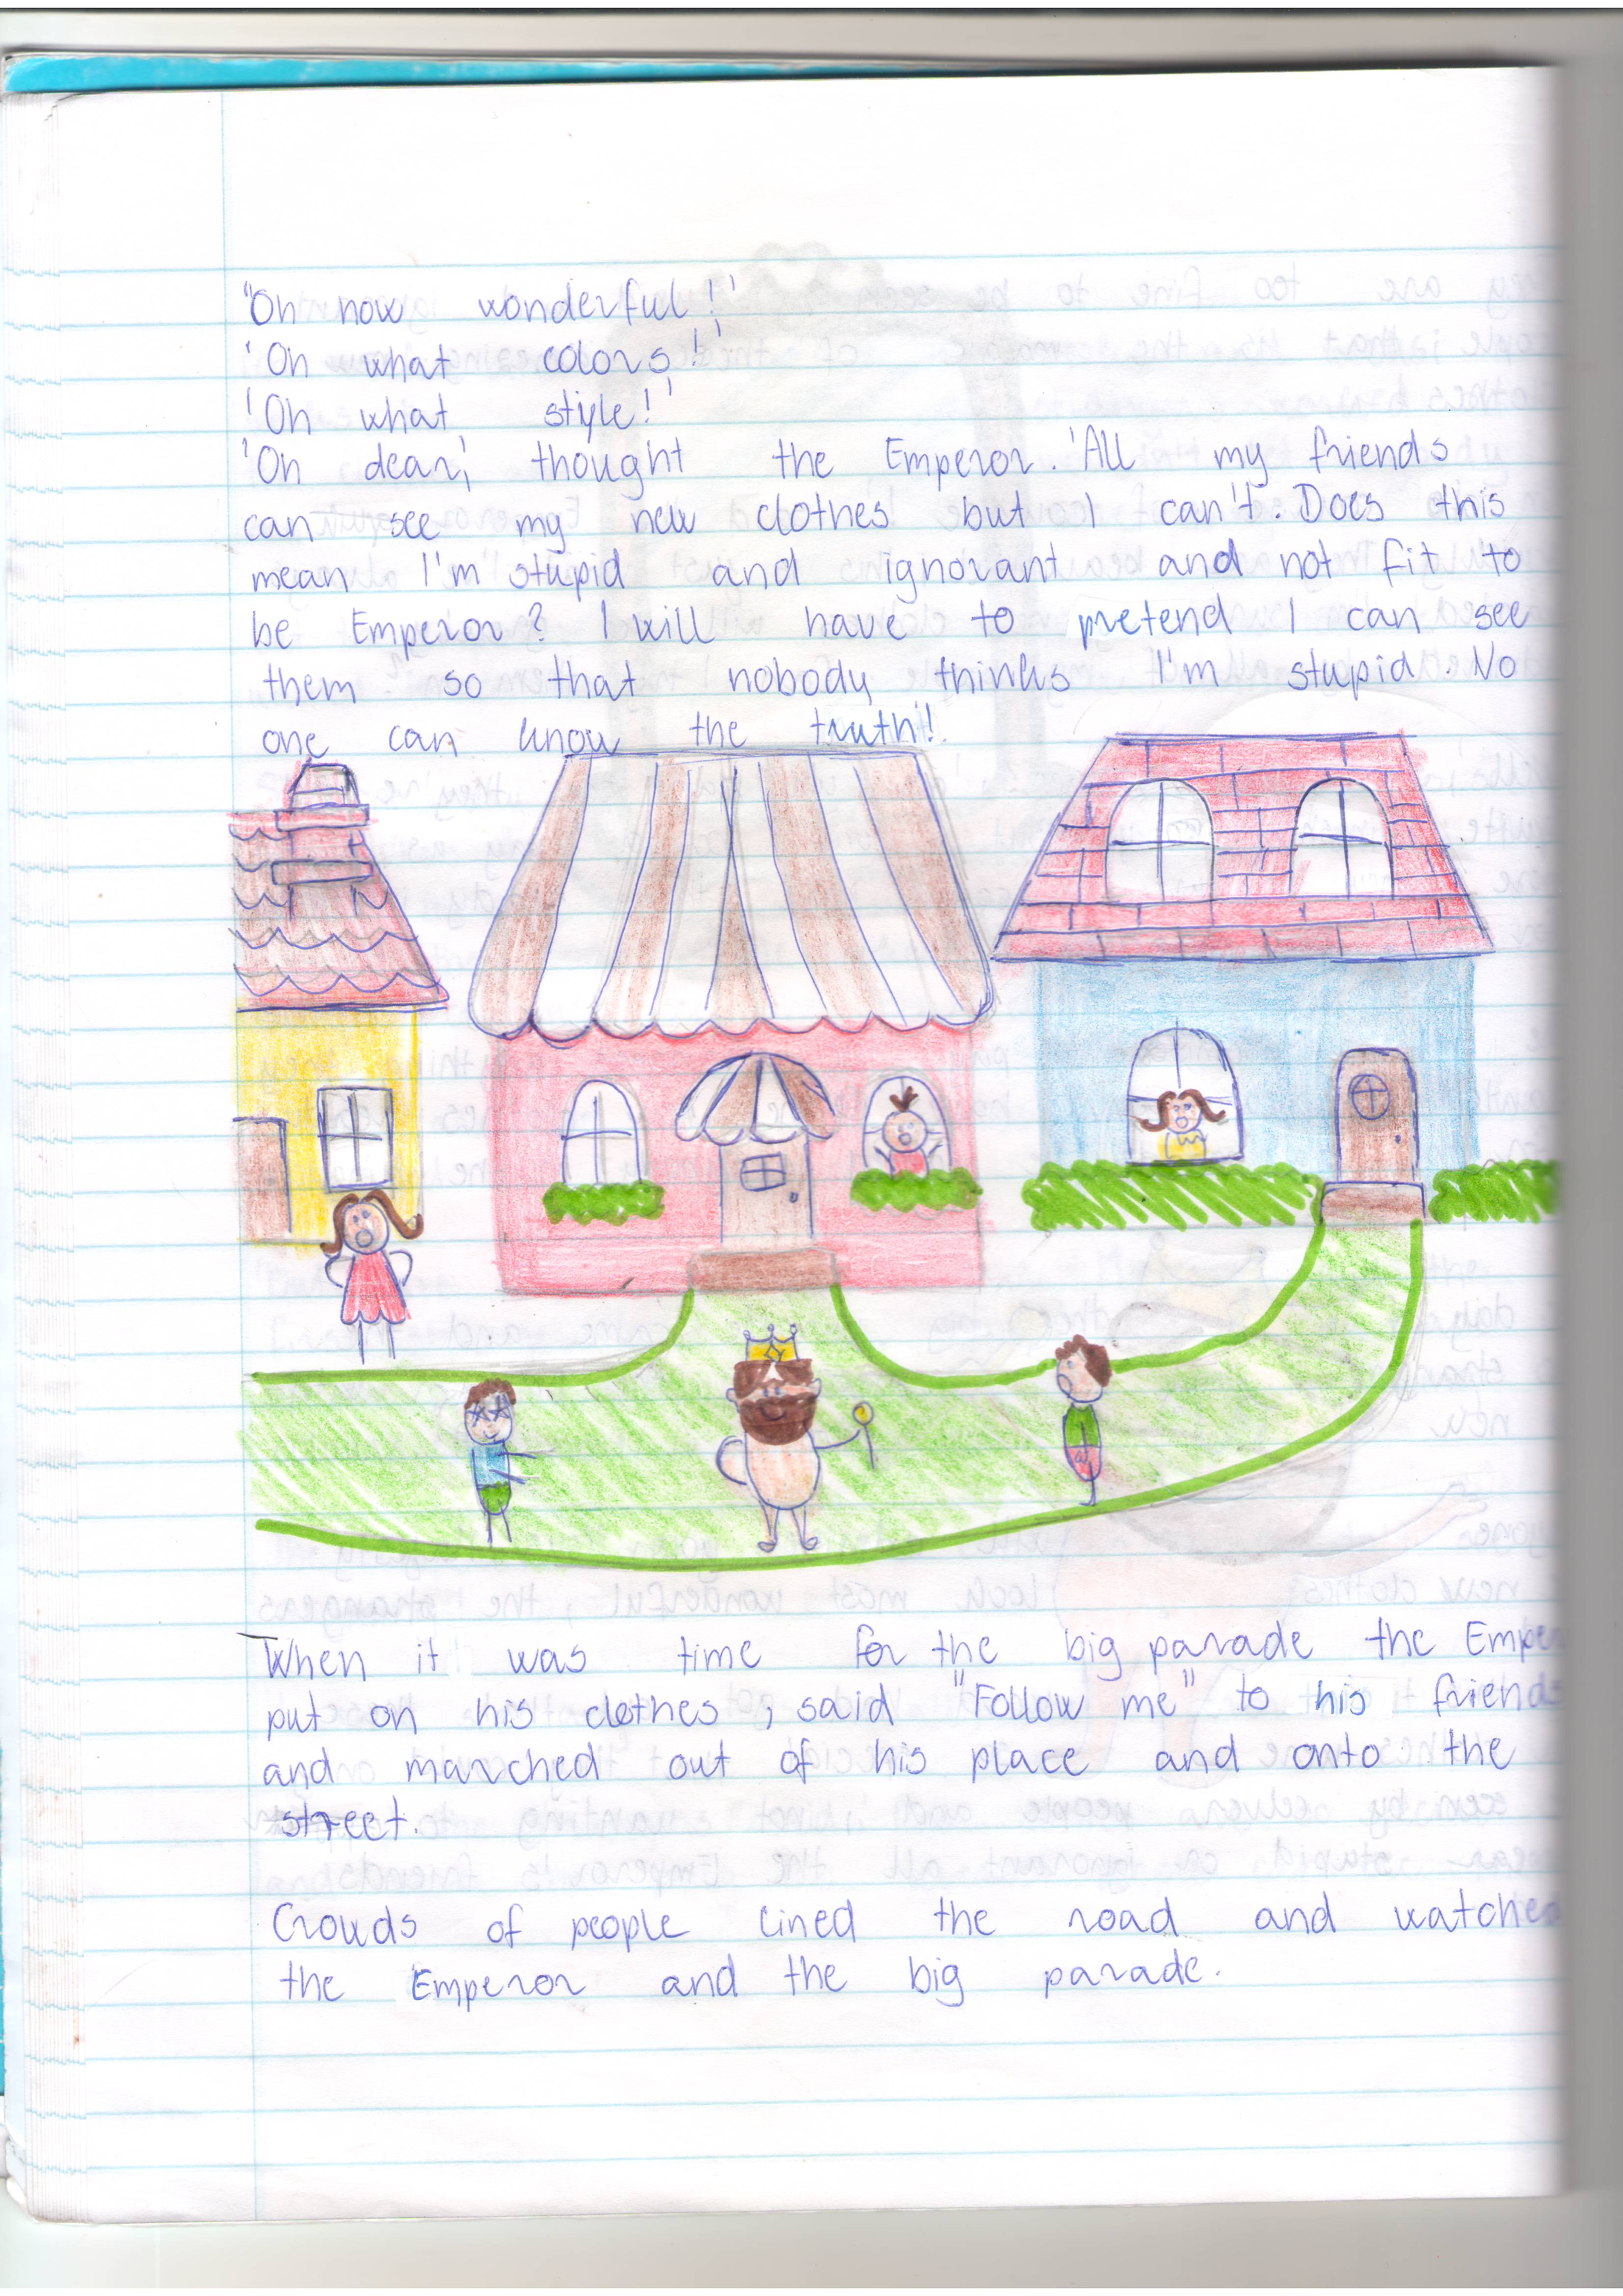 "Oh how wonderful!'
'Oh what colors!'
'Oh what style!'
'Oh dear,' thought the Emperor. 'All my friends
can see my new clothes but I can't. Does this
mean I'm stupid and ignorant and not fit to
be Emperor? I will have to pretend I can see
them so that nobody thinks I'm stupid. No
one can know the truth'!
When it was time for the big parade the Empe
put on his clothes, said "Follow me" to his friends
and marched out of his place and onto the
street.
Crowds of people lined the road and watched
the Emperor and the big parade.